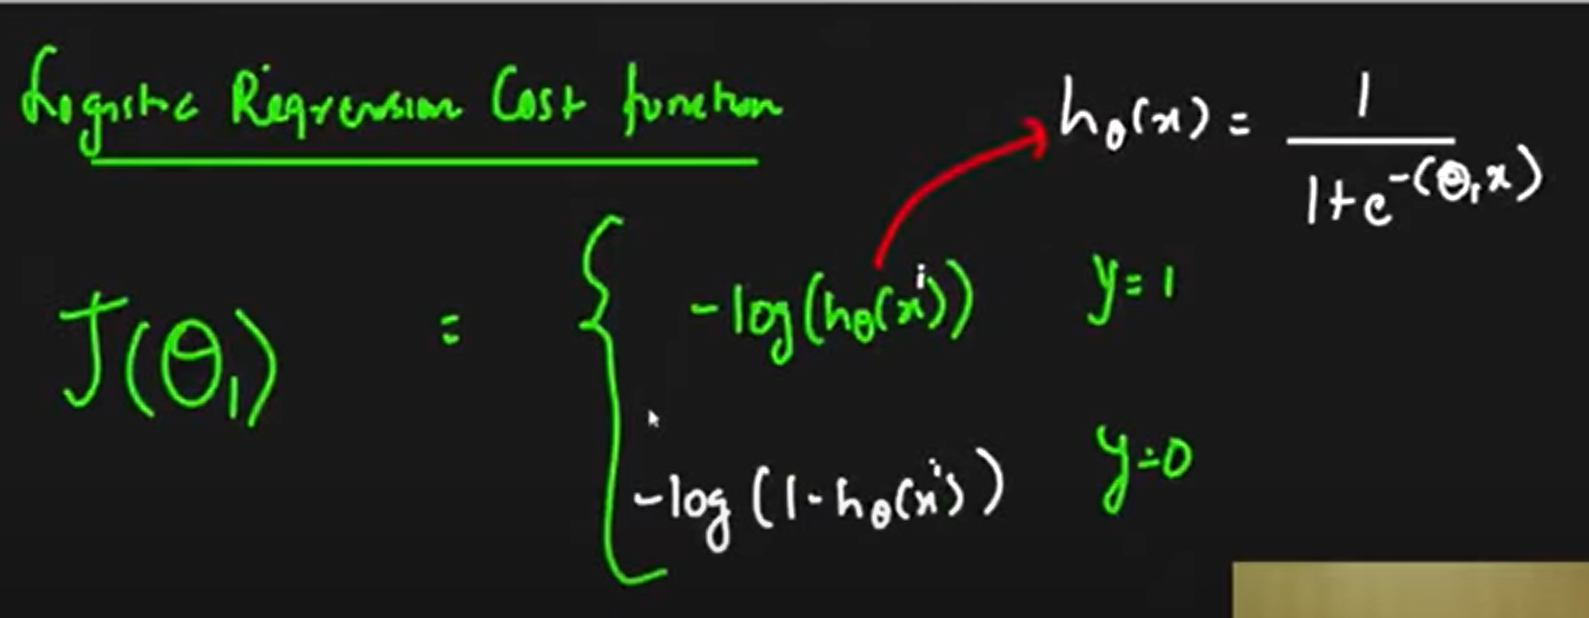 Logistic Regression Cost function
hθ(x) = 1 / (1+e^-(θ₁x))
J(θ₁) = {
-log(hθ(xⁱ)) y=1
-log(1-hθ(xⁱ)) y=0